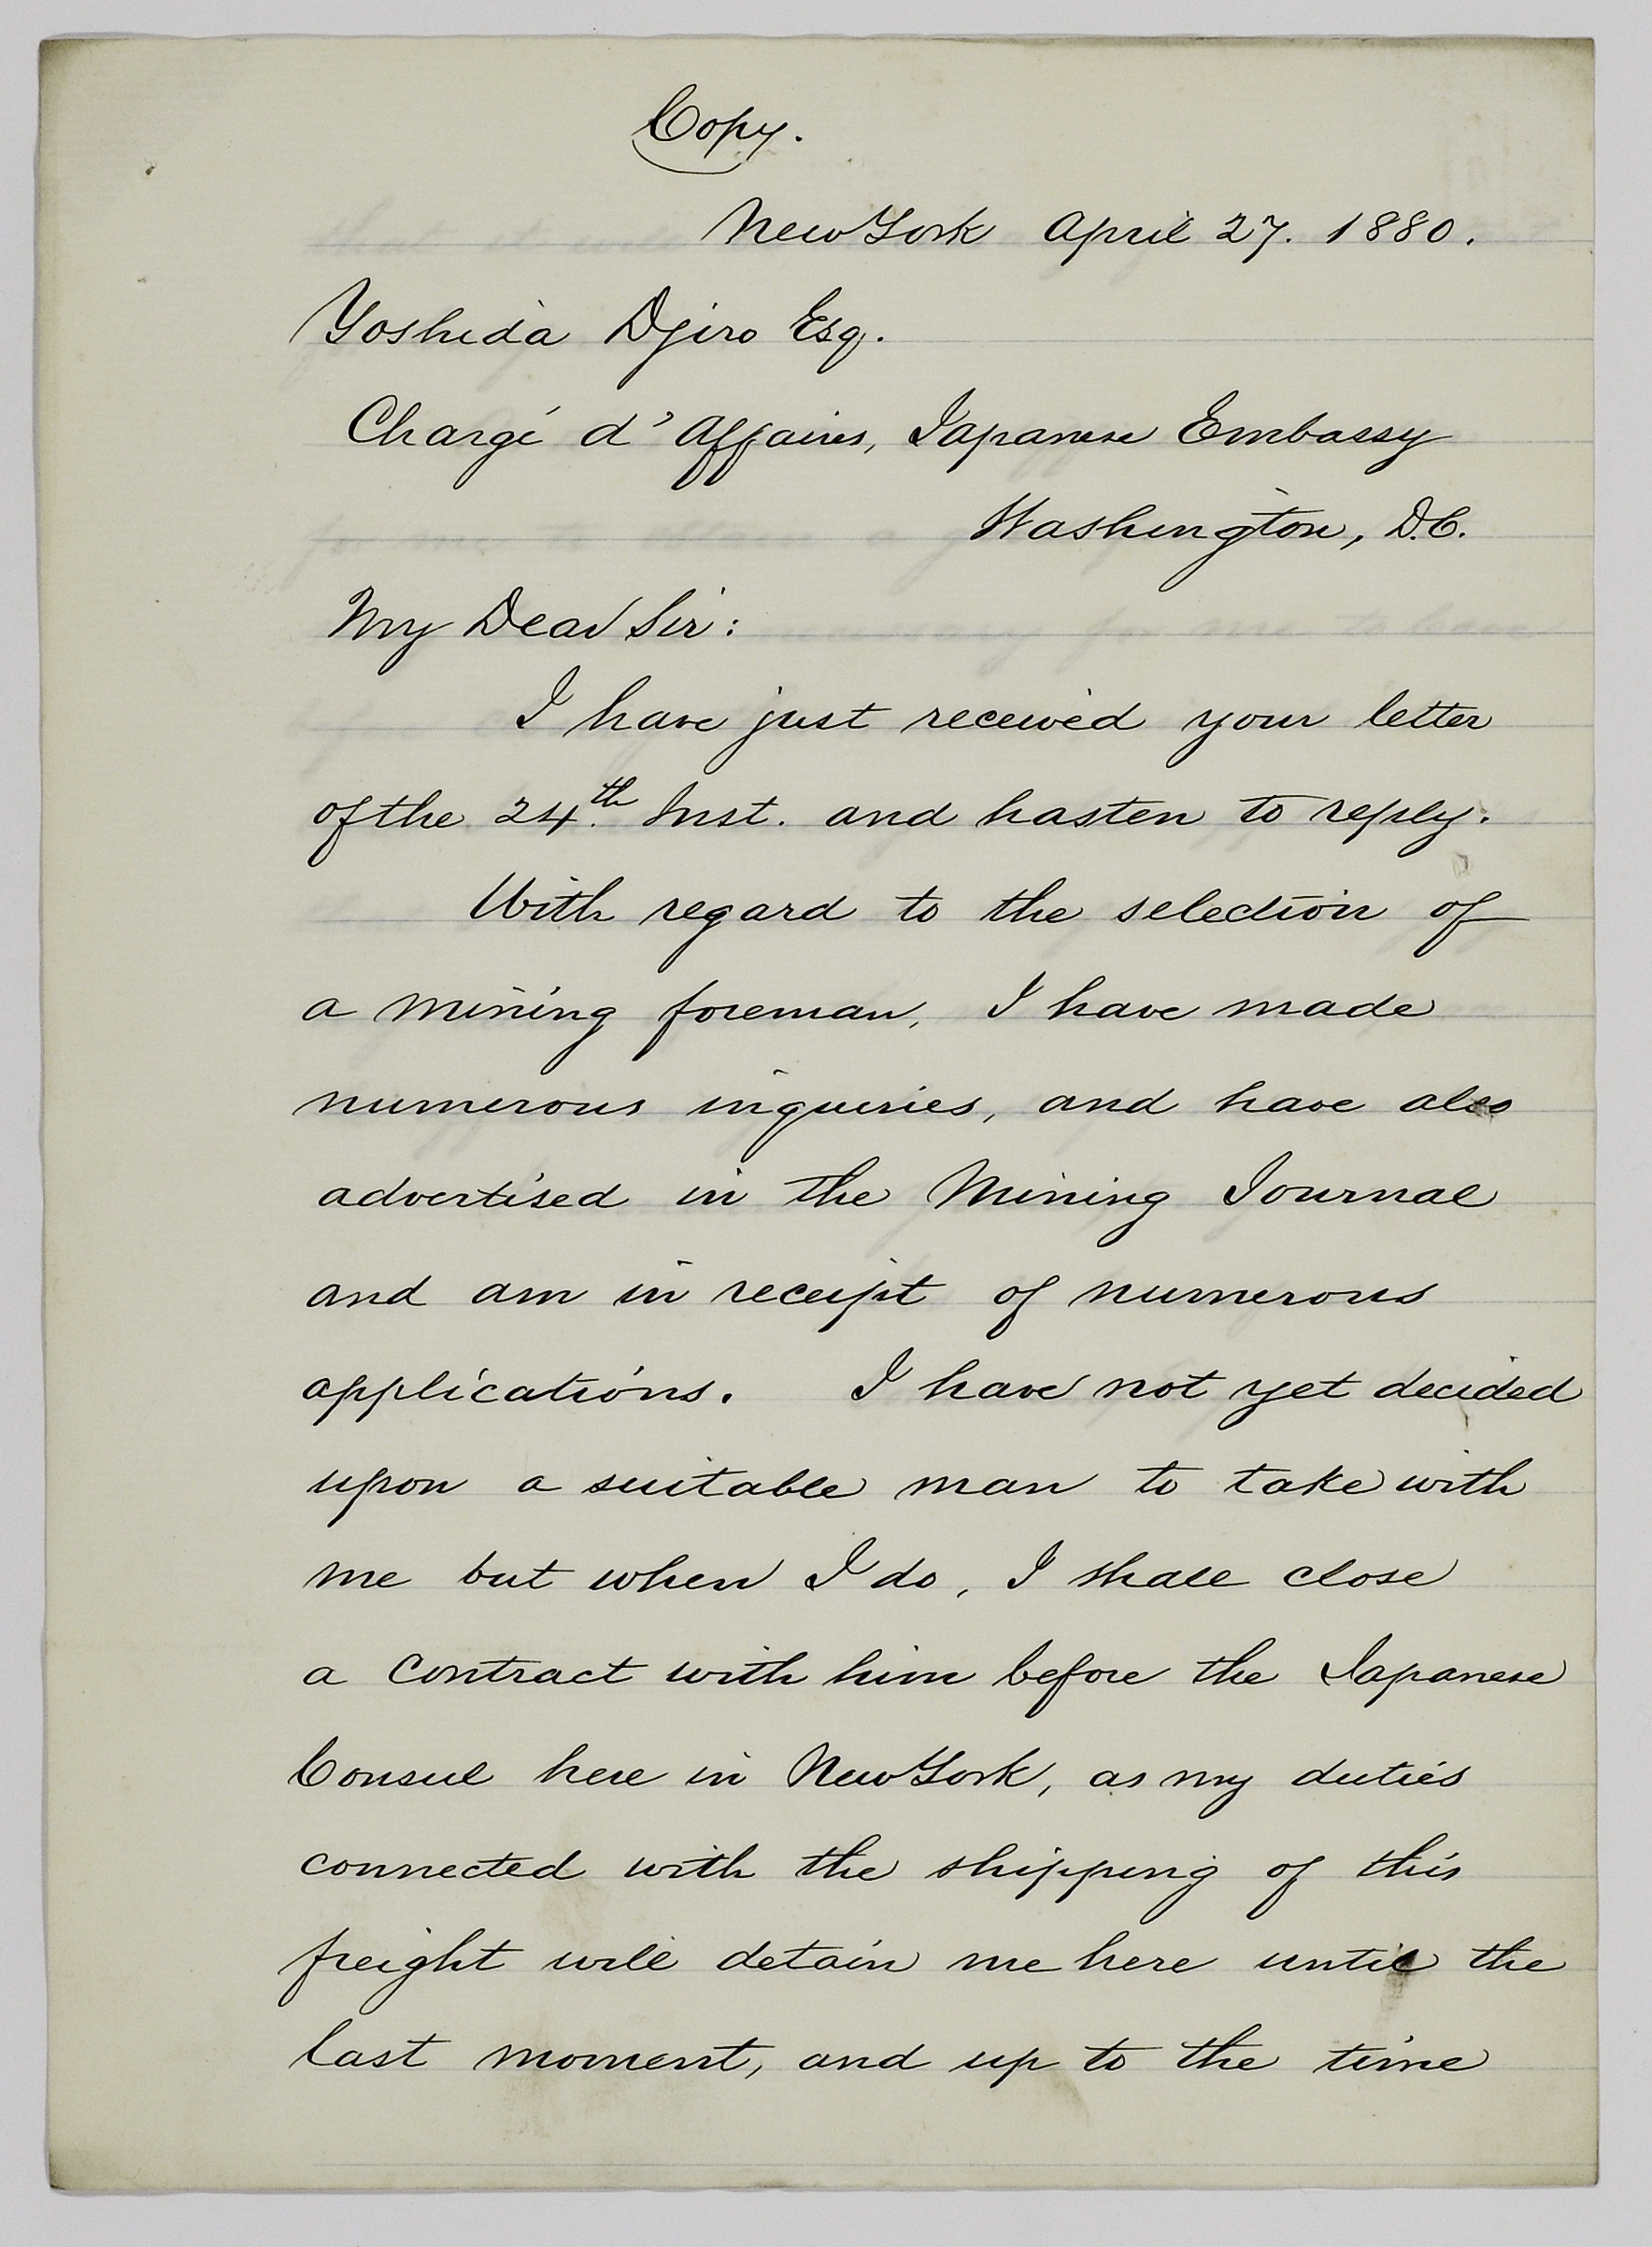 Copy.
New York April 27. 1880.
Yoshida Djiro Esq.
Chargé d'Affaires, Japanese Embassy
Washington, D.C.
My Dear Sir:
I have just received your letter
of the 24th. Inst. and hasten to reply.
With regard to the selection of
a mining foreman, I have made
numerous inquiries, and have also
advertised in the Mining Journal
and am in receipt of numerous
applications. I have not yet decided
upon a suitable man to take with
me but when I do, I shall close
a contract with him before the Japanese
Consul here in New York, as my duties
connected with the shipping of this
freight will detain me here until the
last moment, and up to the time